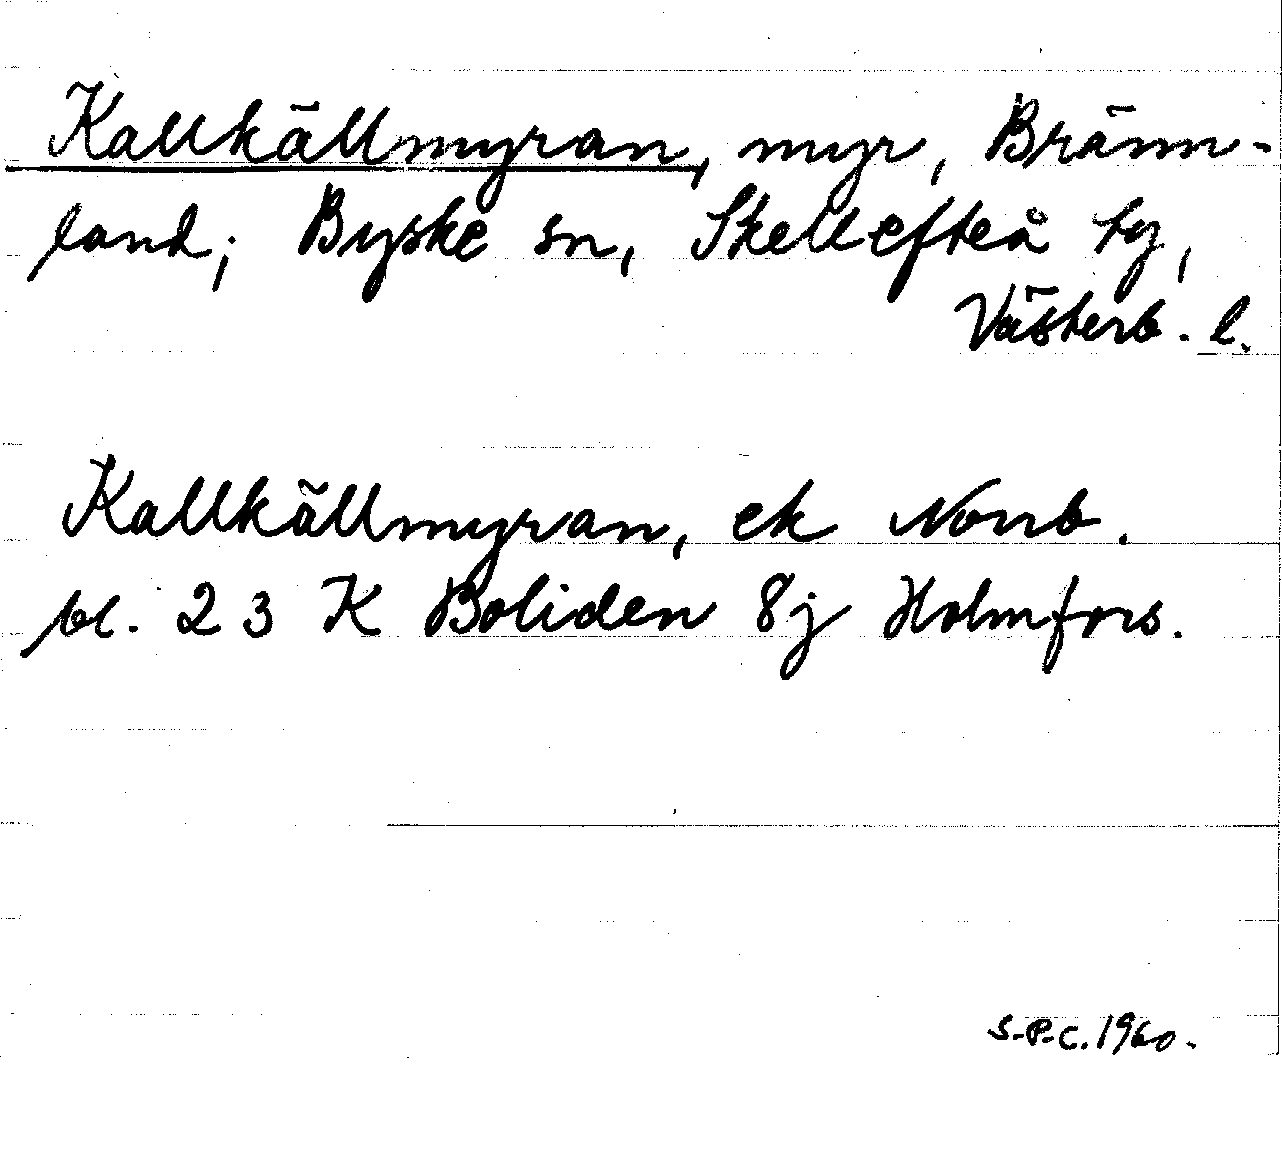 Kallkällmyran, myr, Bränn-
land; Byske sn, Skellefteå tg,
Västerb. l.
Kallkällmyran, ek Norrb.
bl. 23 K Boliden 8j Holmfors.
S-P-C. 1960.